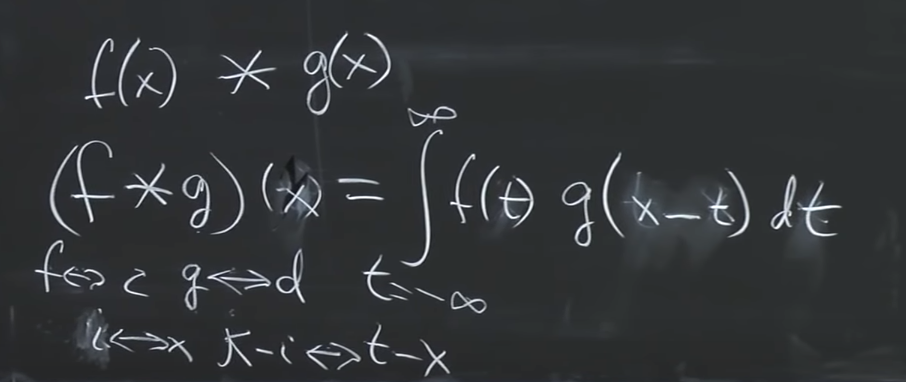 f(x) * g(x)
(f * g)(x) = ∫_{t=-∞}^{∞} f(t) g(x-t) dt
f⇔c g⇔d
i⇔x k-i⇔t-x